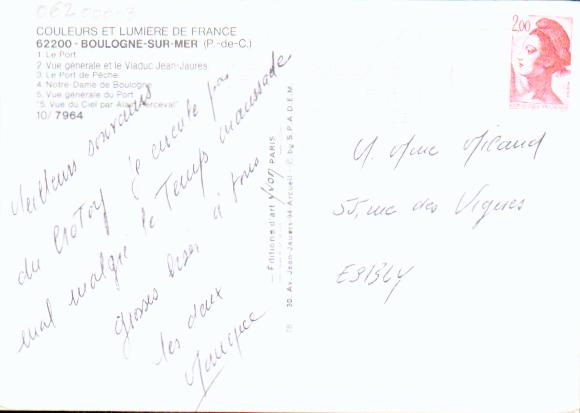 062000-3
COULEURS ET LUMIÈRE DE FRANCE
62200 - BOULOGNE-SUR-MER (P.-de-C.)
1. Le Port
2 Vue générale et le Viaduc Jean-Jaures
3. Le Port de Pêche
4. Notre-Dame de Boulogne
5. Vue générale du Port
"5. Vue du Ciel par Alain Perceval"
10/ 7964
Meilleurs souvenirs
du Crotoy je circule pas
mal malgré le Temps maussade
grosses bises à tous
les deux
— Editions d'art yvon PARIS —
30, Av. Jean-Jaurès-94 Arcueil - © by S.P.A.D.E.M.
2,00
M. Mme Miland
55, rue des Vignes
ESBLY